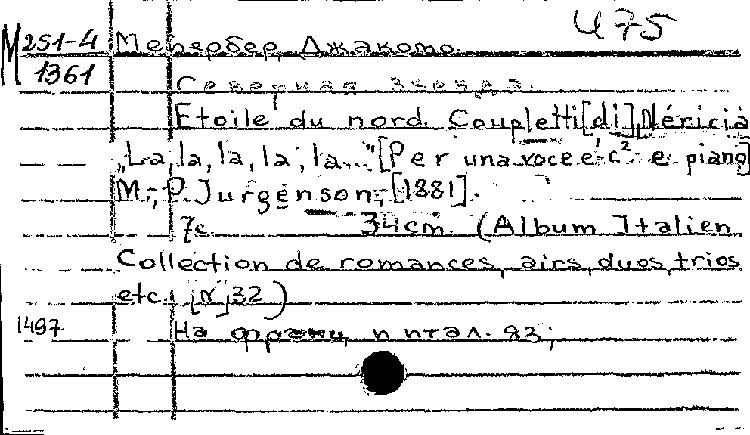 475
М 251-4 Мейербер, Джакомо.
1361 Северная звезда.
Etoile du nord. Coupletti [di] Néricià
„La, la, la, la, la..." [Per una voce e c² e piano]
M., P. Jurgenson, [1881].
7с. 34cm. (Album Italien
Collection de romances, airs, duos, trios
etc. [N] 32)
1497 На франц. и итал. яз;